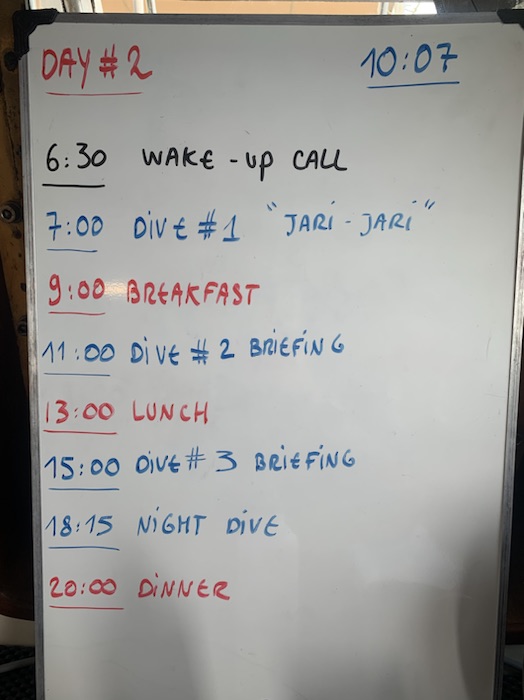 DAY # 2 10:07
6:30 WAKE-UP CALL
7:00 DIVE #1 "JARI-JARI"
9:00 BREAKFAST
11:00 DIVE #2 BRIEFING
13:00 LUNCH
15:00 DIVE #3 BRIEFING
18:15 NIGHT DIVE
20:00 DINNER